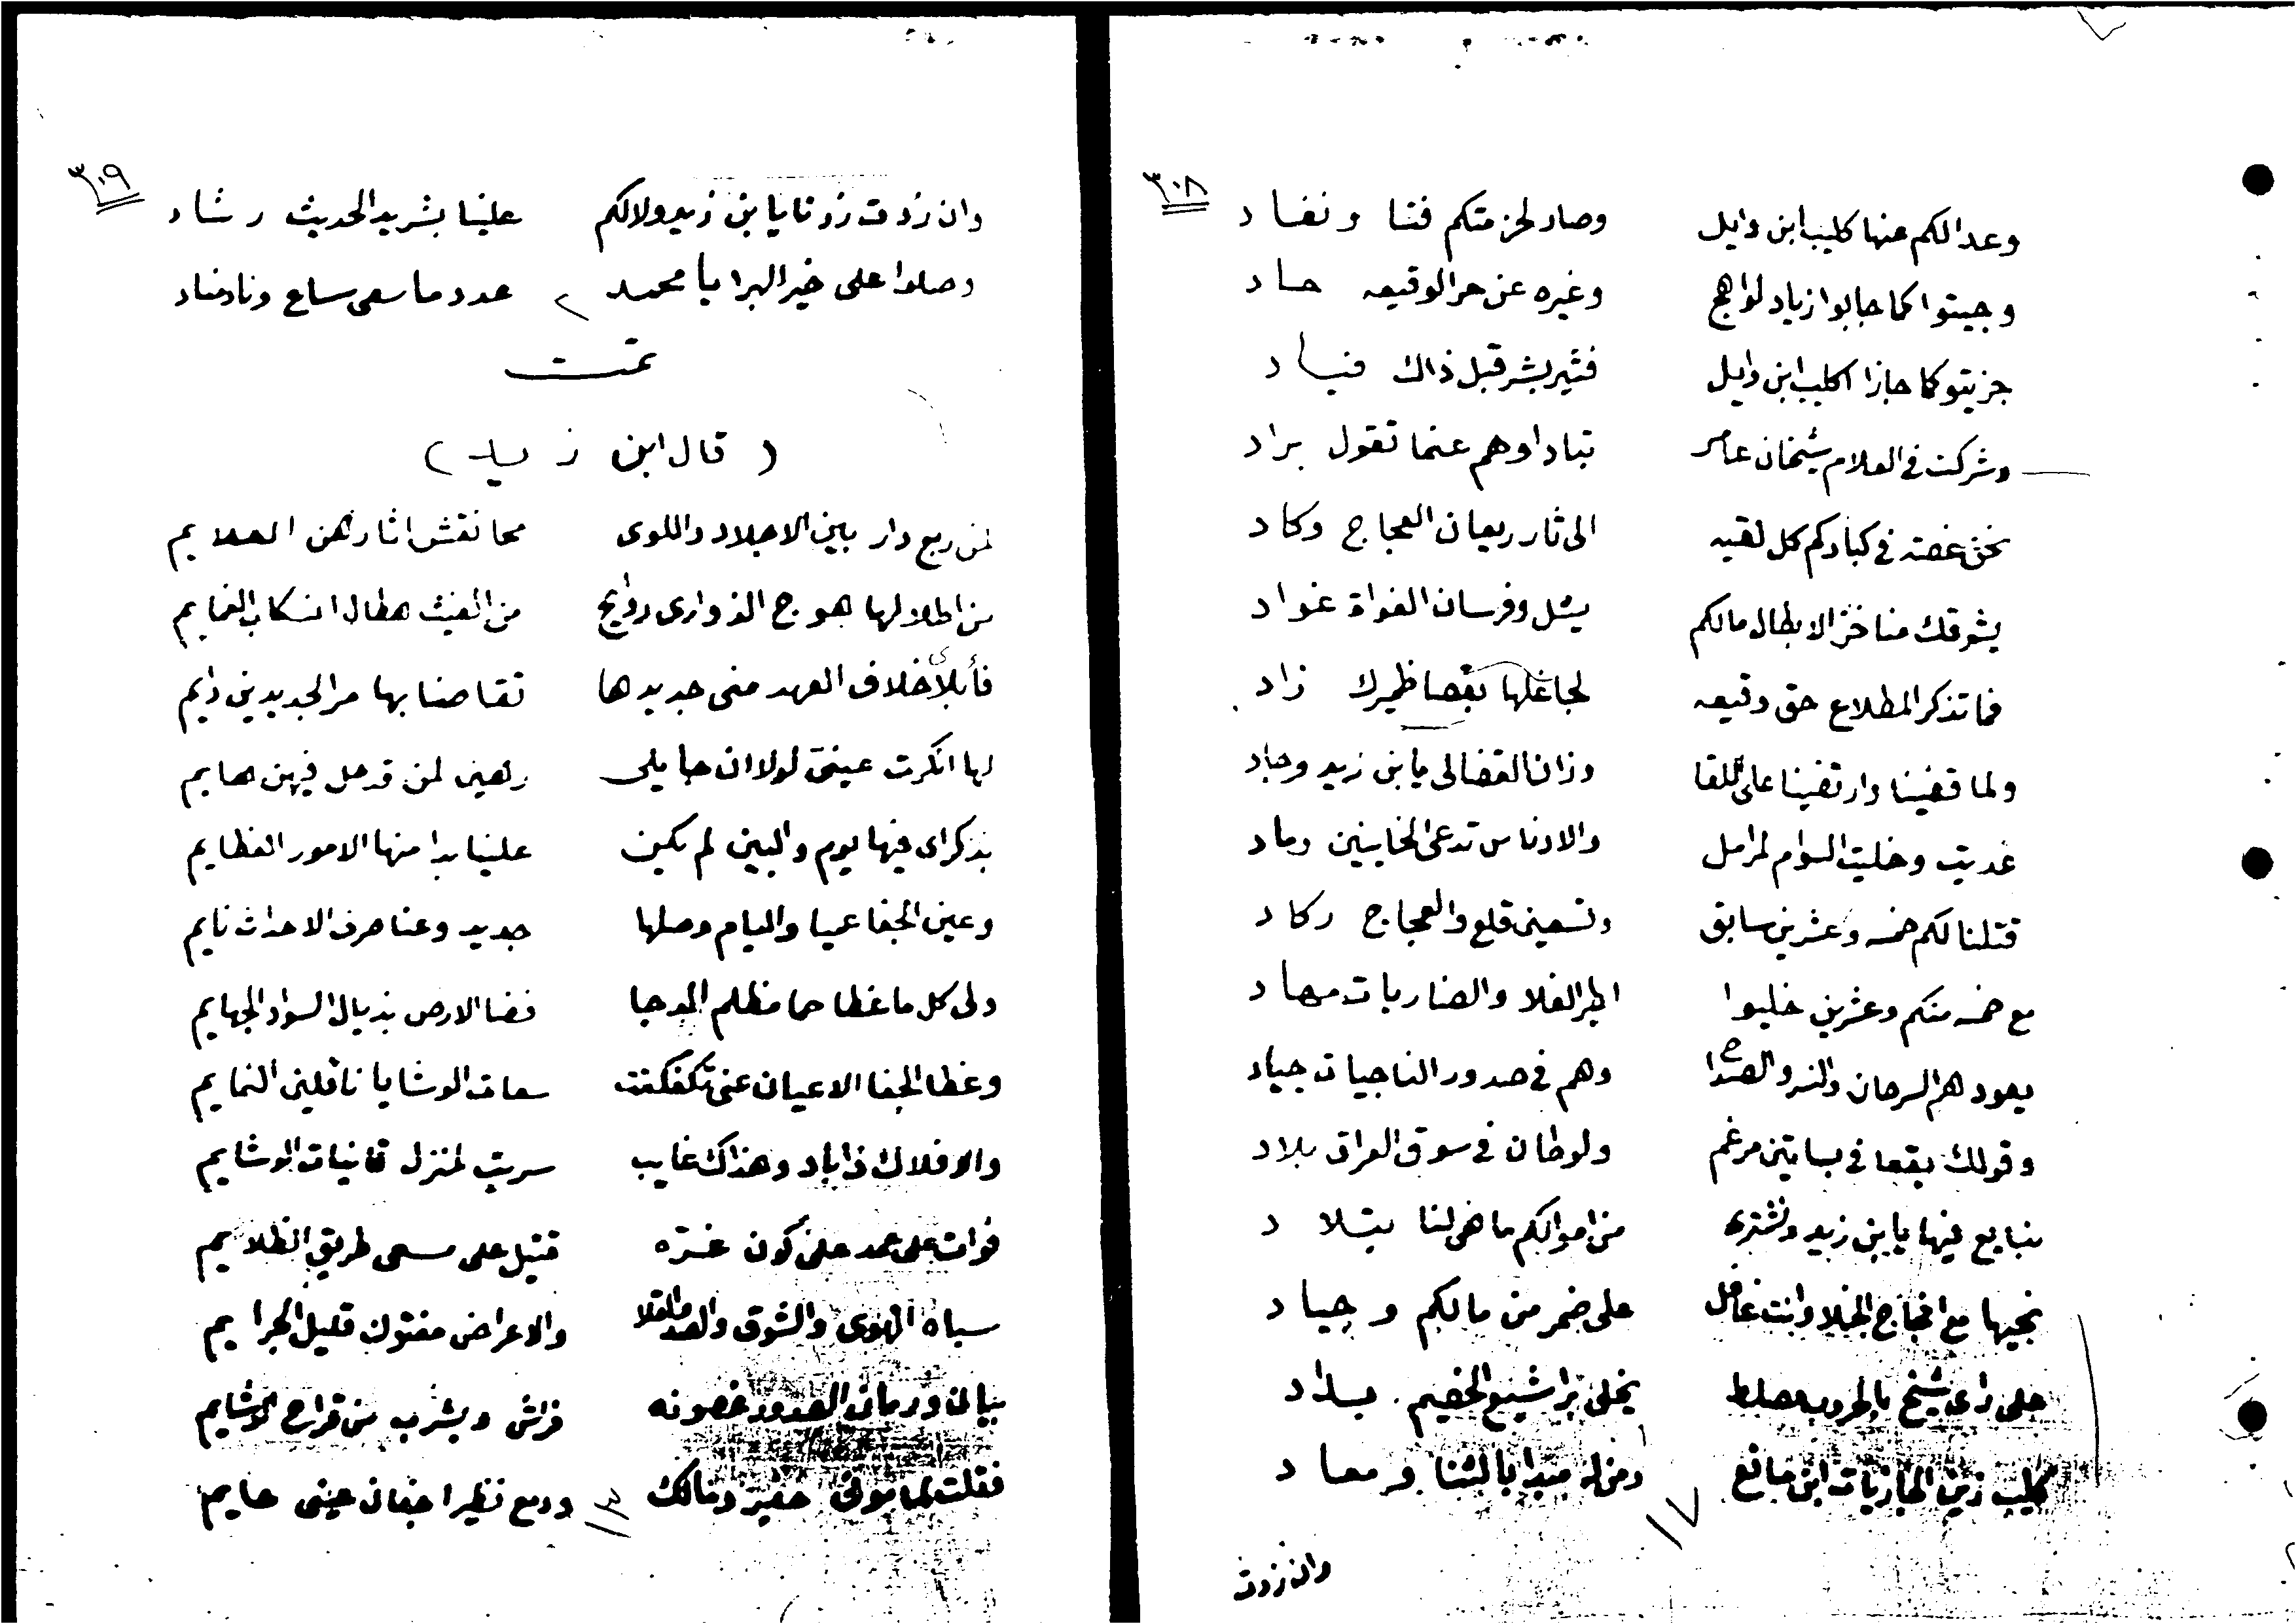 ٣٠٨
وعدالكم عنها كليب ابن وايل وصار لحزمتكم فنا ونفاد
وجيتوا كما جابوا زياد لواهج وغيره عن حر الوقيعه حاد
جزيتو كما جازا كليب ابن وايل فثير بشر قبل ذاك فساد
وشركت في العلام شيخان عامر تباداوهم عنما تقول براد
غصه في كبادكم كل لقيه الى ثار ريعان العجاج وكاد
يشوقك منا خز الابطال مالكم يشل وفرسان الغواة غواد
فما تذكر المطلاع حق وقيعه زاد
ولما قضينا وارتضينا على اللقا وزان القضا لي يابن زيد وجاد
غديت وخليت السوام لمرامل والادناس تدعى الخايبين وماد
قتلنا لكم خمسه وعشرين سابق وتسعين قلع والعجاج ركاد
مع خمسه منكم وعشرين خليوا الفلا والضاريات مهاد
يعودهم السرحان والنسر والصدا وهم في صدور الناجيات جياد
وقولك بقعا في بساتين مرغم ولوطان في سوق العراق بلاد
نبايع فيها يابن زيد ونشتري من اموالكم ما هي لنا بتلاد
نجيبها مع الخلا وانت غافل على ضمر من مالكم وجياد
على راي شيخ بالحروب مصلط يخلي الخصيم بداد
كليب زين ابن مانع ومن له مبدا بالثنا ومعاد
١٧
وان زدت
٣٠٩
وان زدت زدنا يا بن زيد ولالكم علينا بشريد الحديث رشاد
وصلوا على خير البرايا محمد عدد ما سعى ساع وناد مناد
تمت
(قال ابن زيد)
لمن ربع دار بين الاجلاد واللوى محا نقش اثارهن العلايم
من اطلالها هوج الذواري روايح من الغيث هطال انسكاب الغمايم
خلاف العهد مني جديدها تقاضنا بها مر الجديدين دايم
لها انكرت عيني لولا ان رهين لمن قد حل فيهن هايم
بذكراي فيها يوم والبين لم يكن علينا بدا منها الامور العظايم
وعين الجفا عميا واليام وصلها جديد وعنا صرف الاحداث نايم
ولى كل ما غطا حما مظلم الدجا فضا الارض بذيال السواد الجهايم
وغطا الجفا الاعيان عني تكفكفت سعات الوشايا ناقلين النمايم
والافلاك ذا باد وهذاك غايب سريت لمنزل قانيات الوشايم
على عمد على كون غره قتيل على مسعى طريق الظلايم
سباه الهوى والشوق والصد والقلا والاعراض مفتون قليل الجرايم
ورمان الصدور غصونه فراش ويشرب من قراح الوشايم
فقلت لما حقير ومالك ودمع نظير اجفان عيني حايم
١٣